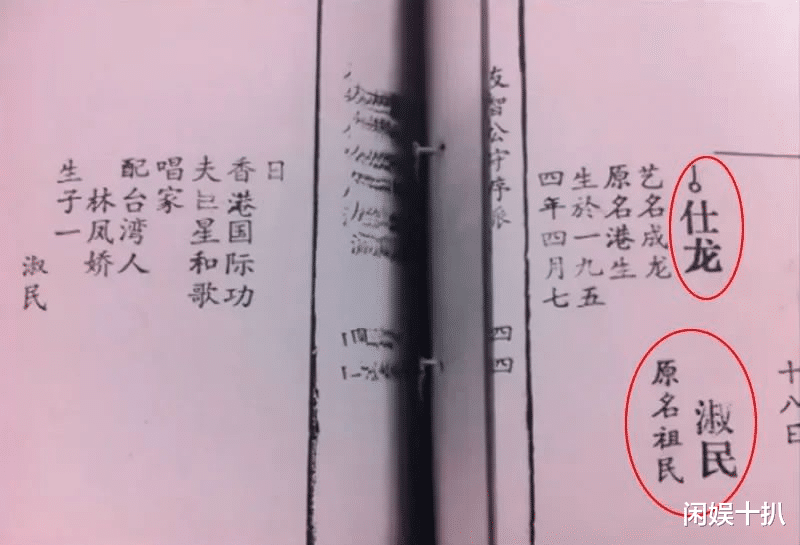 十八日
仕龙
艺名成龙
原名港生
生於一九五
四年四月七
淑民
原名祖民
友智公
四四
日
香港国际功
夫巨星和歌
唱家
配台湾人
林凤娇
生子一
淑民
闲娱十扒